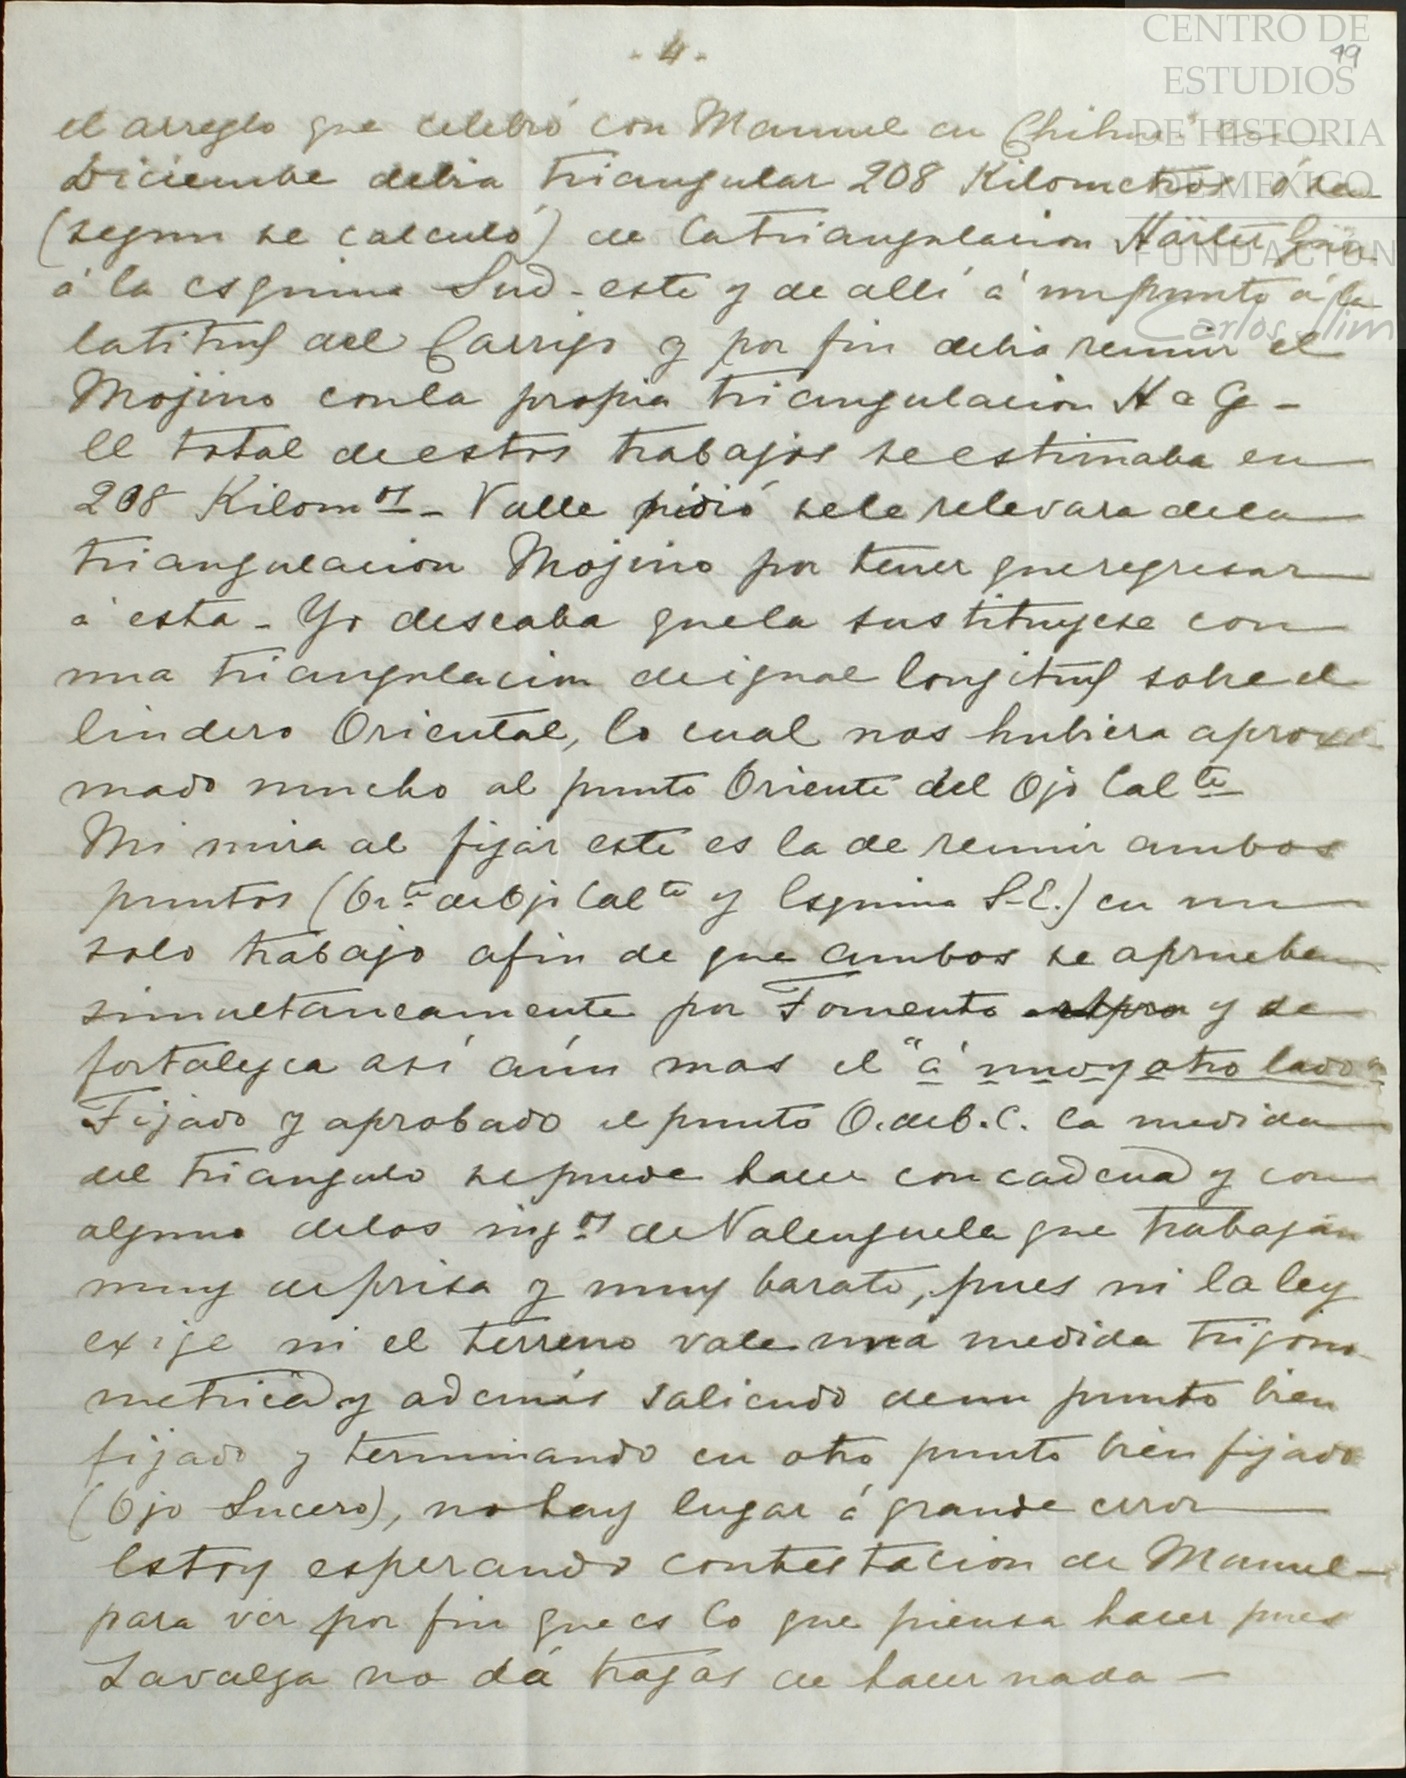 - 4 -
49
CENTRO DE
ESTUDIOS
DE HISTORIA
DE MÉXICO
FUNDACIÓN
Carlos Slim
el arreglo que celebró con Manuel en Chihua
Diciembre debia triangular 208 Kilometros ó sea
(segun se calculó) de la triangulacion
á la esquina Sud-este y de allí á un punto á la
latitud del Carrizo y por fin debia reunir el
Mojino con la propia triangulacion H a G -
El total de estos trabajos se estimaba en
208 Kilomos - Valle pidió se le relevara de la
triangulacion Mojino por tener que regresar
á esta - Yo deseaba que la sustituyese con
una triangulacion de igual longitud sobre el
lindero Oriental, lo cual nos hubiera aproxi-
mado mucho al punto Oriente del Ojo Calte
Mi mira al fijar este es la de reunir ambos
puntos (Orte de Ojo Calte y Esquina S-E.) en un
solo trabajo afin de que ambos se aprueben
simultaneamente por Fomento y se
fortalezca así aún mas el "á uno y otro lado"
Fijado y aprobado el punto O. de O. C. la medida
del triangulo se puede hacer con cadena y con
alguno de los ingos de Valenzuela que trabajan
muy de prisa y muy barato, pues ni la ley
exige ni el terreno vale una medida trigono-
metrica y además saliendo de un punto bien
fijado y terminando en otro punto bien fijado
(Ojo Lucero), no hay lugar á grande error
Estoy esperando contestacion de Manuel
para ver por fin que es lo que piensa hacer pues
Zavalza no dá trazas de hacer nada -